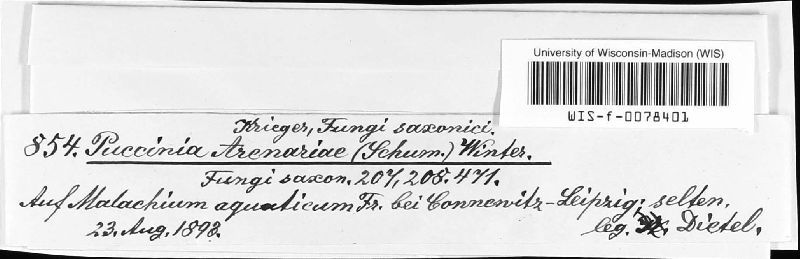 University of Wisconsin-Madison (WIS)
WIS-f-0078401
Krieger, Fungi saxonici.
854. Puccinia Arenariae (Schum.) Winter.
Fungi saxon. 207, 208. 471.
Auf Malachium aquaticum Fr. bei Connewitz-Leipzig; selten.
23. Aug. 1893. leg. Dietel.